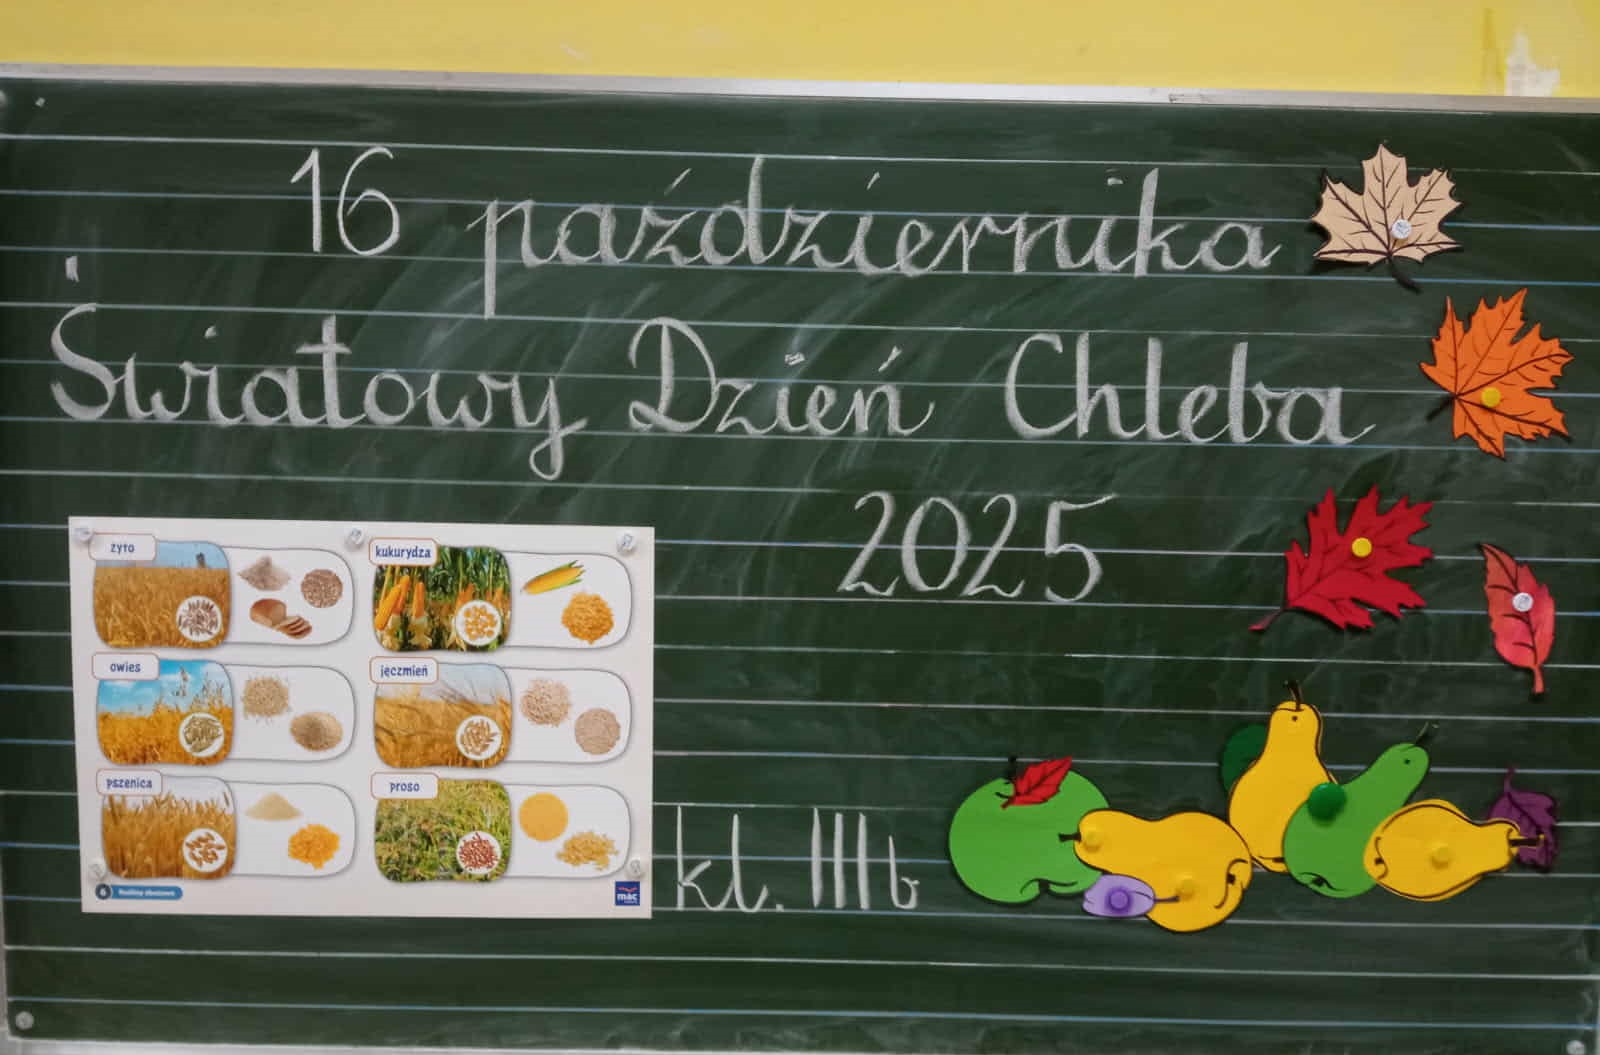 16 października
Światowy Dzień Chleba
2025
żyto
kukurydza
owies
jęczmień
pszenica
proso
6 Rośliny zbożowe
mac
kl. III b